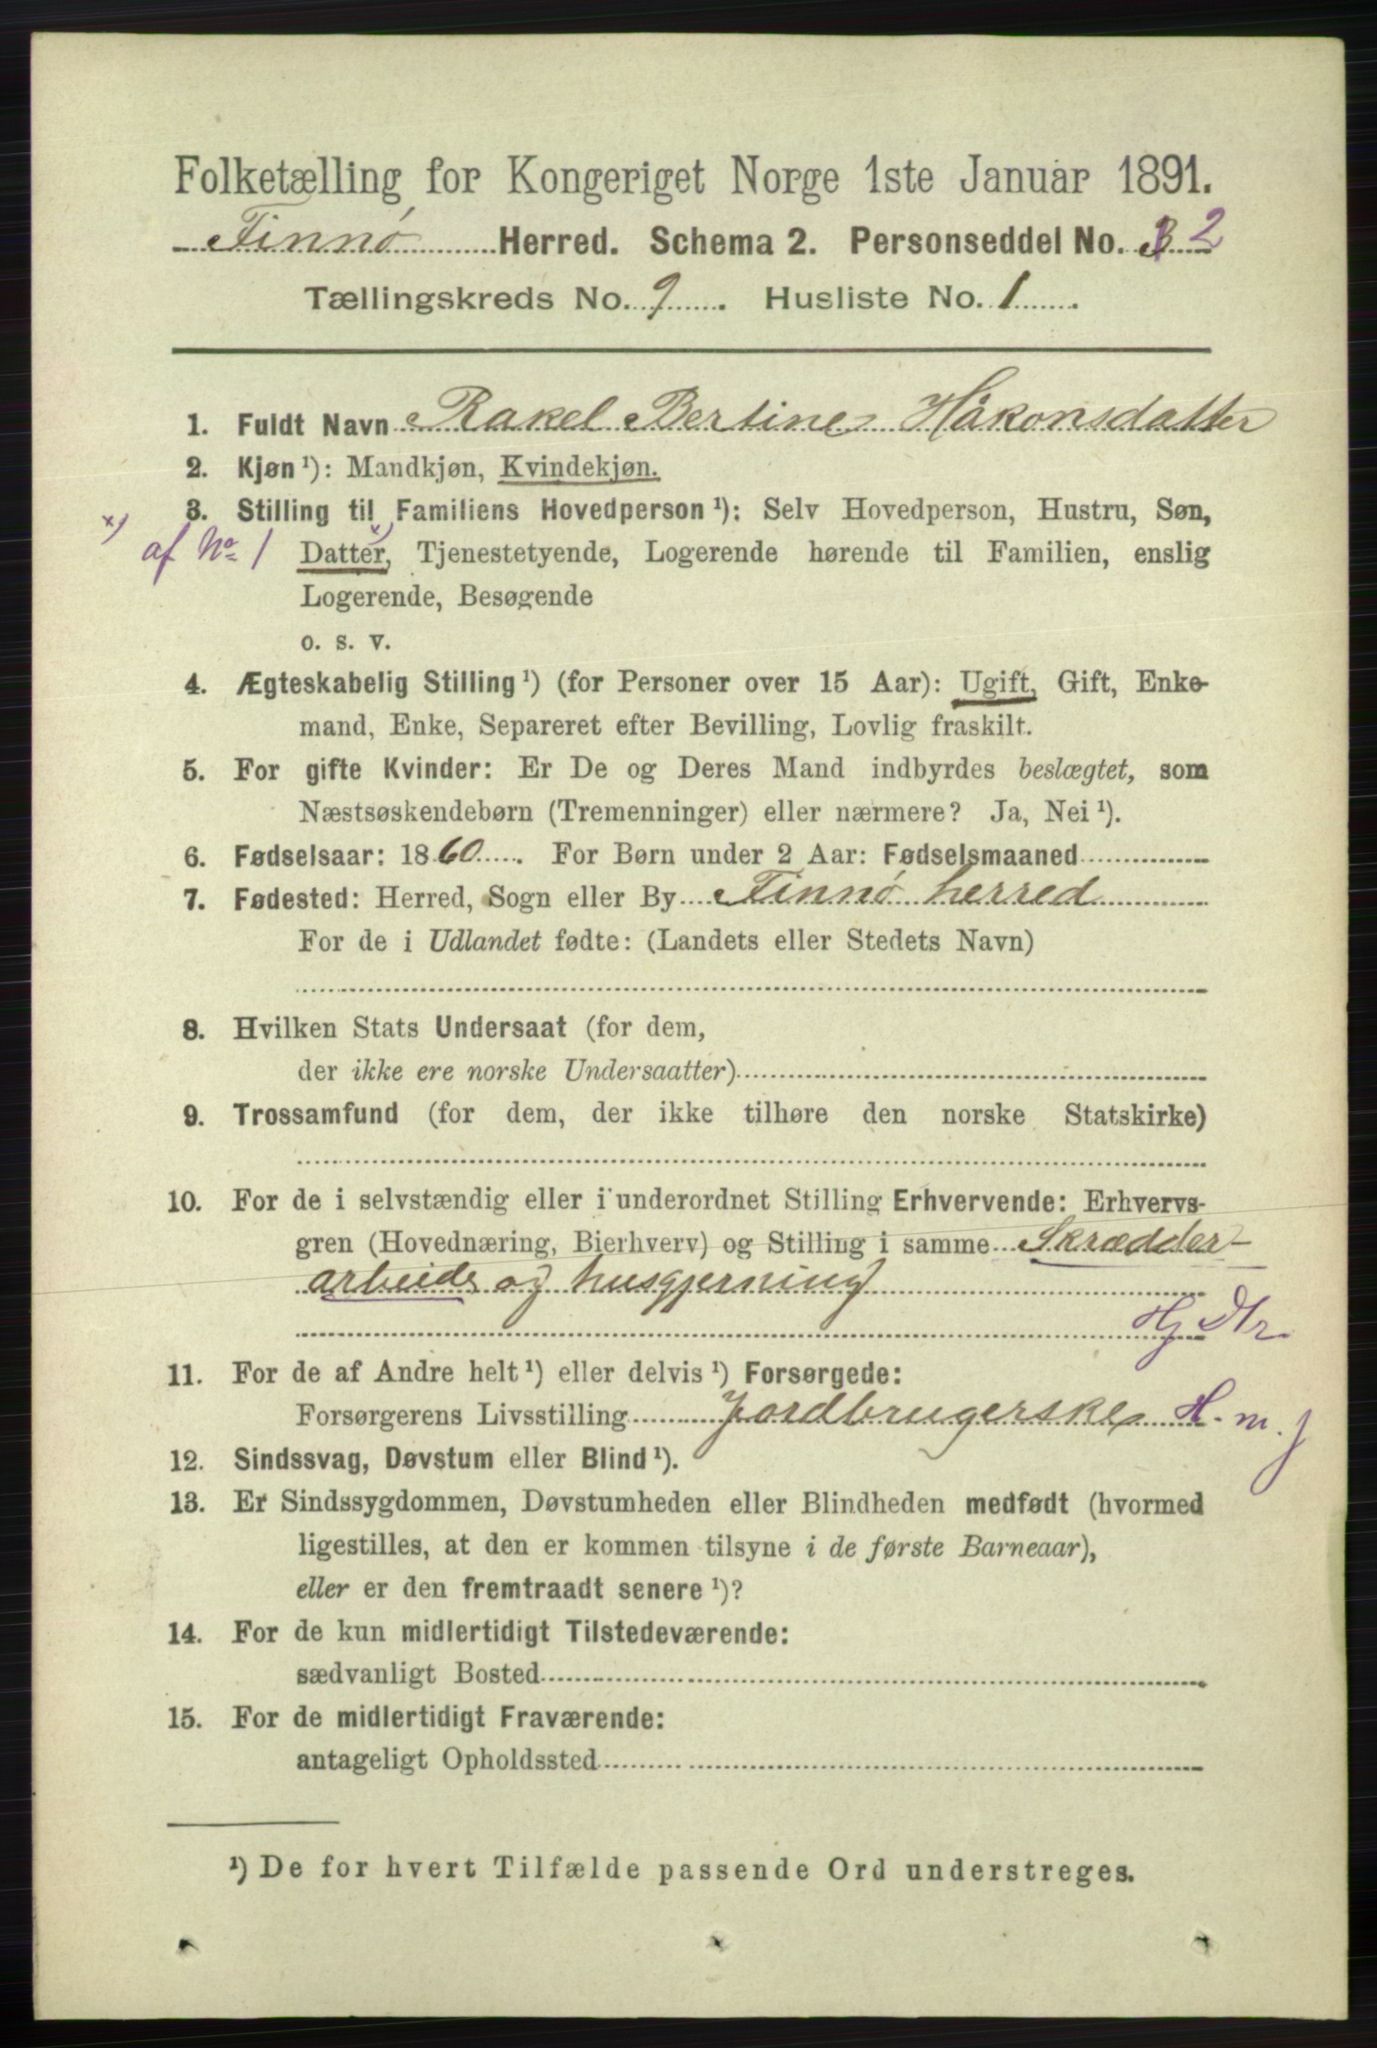 Folketælling for Kongeriget Norge 1ste Januar 1891.
Finnø Herred. Schema 2. Personseddel No. 2
Tællingskreds No. 9. Husliste No. 1.
1. Fuldt Navn Rakel Bertine Håkonsdatter
2. Kjøn ¹): Mandkjøn, Kvindekjøn.
3. Stilling til Familiens Hovedperson ¹): Selv Hovedperson, Hustru, Søn,
x) af No 1
Datter, x) Tjenestetyende, Logerende hørende til Familien, enslig
Logerende, Besøgende
o. s. v.
4. Ægteskabelig Stilling ¹) (for Personer over 15 Aar): Ugift, Gift, Enke-
mand, Enke, Separeret efter Bevilling, Lovlig fraskilt.
5. For gifte Kvinder: Er De og Deres Mand indbyrdes beslægtet, som
Næstsøskendebørn (Tremenninger) eller nærmere? Ja, Nei ¹).
6. Fødselsaar: 1860. For Børn under 2 Aar: Fødselsmaaned
7. Fødested: Herred, Sogn eller By Finnø herred
For de i Udlandet fødte: (Landets eller Stedets Navn)
8. Hvilken Stats Undersaat (for dem,
der ikke ere norske Undersaatter)
9. Trossamfund (for dem, der ikke tilhøre den norske Statskirke)
10. For de i selvstændig eller i underordnet Stilling Erhvervende: Erhvervs-
gren (Hovednæring, Bierhverv) og Stilling i samme Skrædder-
arbeide og husgjerning
Hj Dtr.
11. For de af Andre helt ¹) eller delvis ¹) Forsørgede:
Forsørgerens Livsstilling Jordbrugerske H. m. j
12. Sindssvag, Døvstum eller Blind ¹).
13. Er Sindssygdommen, Døvstumheden eller Blindheden medfødt (hvormed
ligestilles, at den er kommen tilsyne i de første Barneaar),
eller er den fremtraadt senere ¹)?
14. For de kun midlertidigt Tilstedeværende:
sædvanligt Bosted
15. For de midlertidigt Fraværende:
antageligt Opholdssted
¹) De for hvert Tilfælde passende Ord understreges.